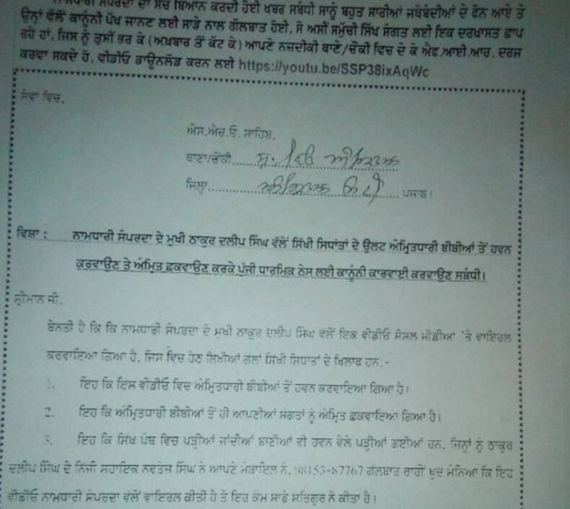 ਸੰਪਰਦਾ ਦਾ ਸੱਚ ਬਿਆਨ ਕਰਦੀ ਹੋਈ ਖਬਰ ਸਬੰਧੀ ਸਾਨੂੰ ਬਹੁਤ ਸਾਰੀਆਂ ਜਥੇਬੰਦੀਆਂ ਦੇ ਫੋਨ ਆਏ ਤੇ
ਉਨ੍ਹਾਂ ਵੱਲੋਂ ਕਾਨੂੰਨੀ ਪੱਖ ਜਾਨਣ ਲਈ ਸਾਡੇ ਨਾਲ ਗੱਲਬਾਤ ਹੋਈ, ਸੋ ਅਸੀਂ ਸਮੁੱਚੀ ਸਿੱਖ ਸੰਗਤ ਲਈ ਇਕ ਦਰਖਾਸਤ ਛਾਪ
ਰਹੇ ਹਾਂ, ਜਿਸ ਨੂੰ ਤੁਸੀਂ ਭਰ ਕੇ (ਅਖ਼ਬਾਰ ਤੋਂ ਕੱਟ ਕੇ) ਆਪਣੇ ਨਜ਼ਦੀਕੀ ਥਾਣੇ/ਚੌਂਕੀ ਵਿਚ ਦੇ ਕੇ ਐਫ.ਆਈ.ਆਰ. ਦਰਜ
ਕਰਵਾ ਸਕਦੇ ਹੋ, ਵੀਡੀਓ ਡਾਊਨਲੋਡ ਕਰਨ ਲਈ https://youtu.be/SSP38ixAqWc
ਸੇਵਾ ਵਿਚ,
ਐਸ.ਐਚ.ਓ. ਸਾਹਿਬ,
ਥਾਣਾ/ਚੌਂਕੀ
ਜਿਲ੍ਹਾ ਪੰਜਾਬ।
ਵਿਸ਼ਾ : ਨਾਮਧਾਰੀ ਸੰਪਰਦਾ ਦੇ ਮੁਖੀ ਠਾਕੁਰ ਦਲੀਪ ਸਿੰਘ ਵੱਲੋਂ ਸਿੱਖੀ ਸਿਧਾਂਤਾਂ ਦੇ ਉਲਟ ਅੰਮ੍ਰਿਤਧਾਰੀ ਬੀਬੀਆਂ ਤੋਂ ਹਵਨ
ਕਰਵਾਉਣ ਤੇ ਅੰਮ੍ਰਿਤ ਛਕਵਾਉਣ ਕਰਕੇ ਪੁੱਜੀ ਧਾਰਮਿਕ ਠੇਸ ਲਈ ਕਾਨੂੰਨੀ ਕਾਰਵਾਈ ਕਰਵਾਉਣ ਸਬੰਧੀ।
ਸ਼੍ਰੀਮਾਨ ਜੀ,
ਬੇਨਤੀ ਹੈ ਕਿ ਕਿ ਨਾਮਧਾਰੀ ਸੰਪਰਦਾ ਦੇ ਮੁਖੀ ਠਾਕੁਰ ਦਲੀਪ ਸਿੰਘ ਵੱਲੋਂ ਇਕ ਵੀਡੀਓ ਸੋਸ਼ਲ ਮੀਡੀਆ 'ਤੇ ਵਾਇਰਲ
ਕਰਵਾਇਆ ਗਿਆ ਹੈ, ਜਿਸ ਵਿਚ ਹੇਠ ਲਿਖੀਆਂ ਗੱਲਾਂ ਸਿੱਖੀ ਸਿਧਾਂਤਾਂ ਦੇ ਖਿਲਾਫ਼ ਹਨ:-
1. ਇਹ ਕਿ ਇਸ ਵੀਡੀਓ ਵਿਚ ਅੰਮ੍ਰਿਤਧਾਰੀ ਬੀਬੀਆਂ ਤੋਂ ਹਵਨ ਕਰਵਾਇਆ ਗਿਆ ਹੈ।
2. ਇਹ ਕਿ ਅੰਮ੍ਰਿਤਧਾਰੀ ਬੀਬੀਆਂ ਤੋਂ ਹੀ ਆਪਣੀਆਂ ਸੰਗਤਾਂ ਨੂੰ ਅੰਮ੍ਰਿਤ ਛਕਵਾਇਆ ਗਿਆ ਹੈ।
3. ਇਹ ਕਿ ਸਿੱਖ ਪੰਥ ਵਿਚ ਪੜ੍ਹੀਆਂ ਜਾਂਦੀਆਂ ਬਾਣੀਆਂ ਵੀ ਹਵਨ ਵੇਲੇ ਪੜ੍ਹੀਆਂ ਗਈਆਂ ਹਨ, ਜਿਨ੍ਹਾਂ ਨੂੰ ਠਾਕੁਰ
ਦਲੀਪ ਸਿੰਘ ਦੇ ਨਿੱਜੀ ਸਹਾਇਕ ਨਵਤੇਜ ਸਿੰਘ ਨੇ ਆਪਣੇ ਮੋਬਾਇਲ ਨੰ. 98153-87767 ਗੱਲਬਾਤ ਰਾਹੀਂ ਖੁਦ ਮੰਨਿਆ ਕਿ ਇਹ
ਵੀਡੀਓ ਨਾਮਧਾਰੀ ਸੰਪਰਦਾ ਵੱਲੋਂ ਵਾਇਰਲ ਕੀਤੀ ਹੈ ਤੇ ਇਹ ਕੰਮ ਸਾਡੇ ਸਤਿਗੁਰ ਨੇ ਕੀਤਾ ਹੈ।